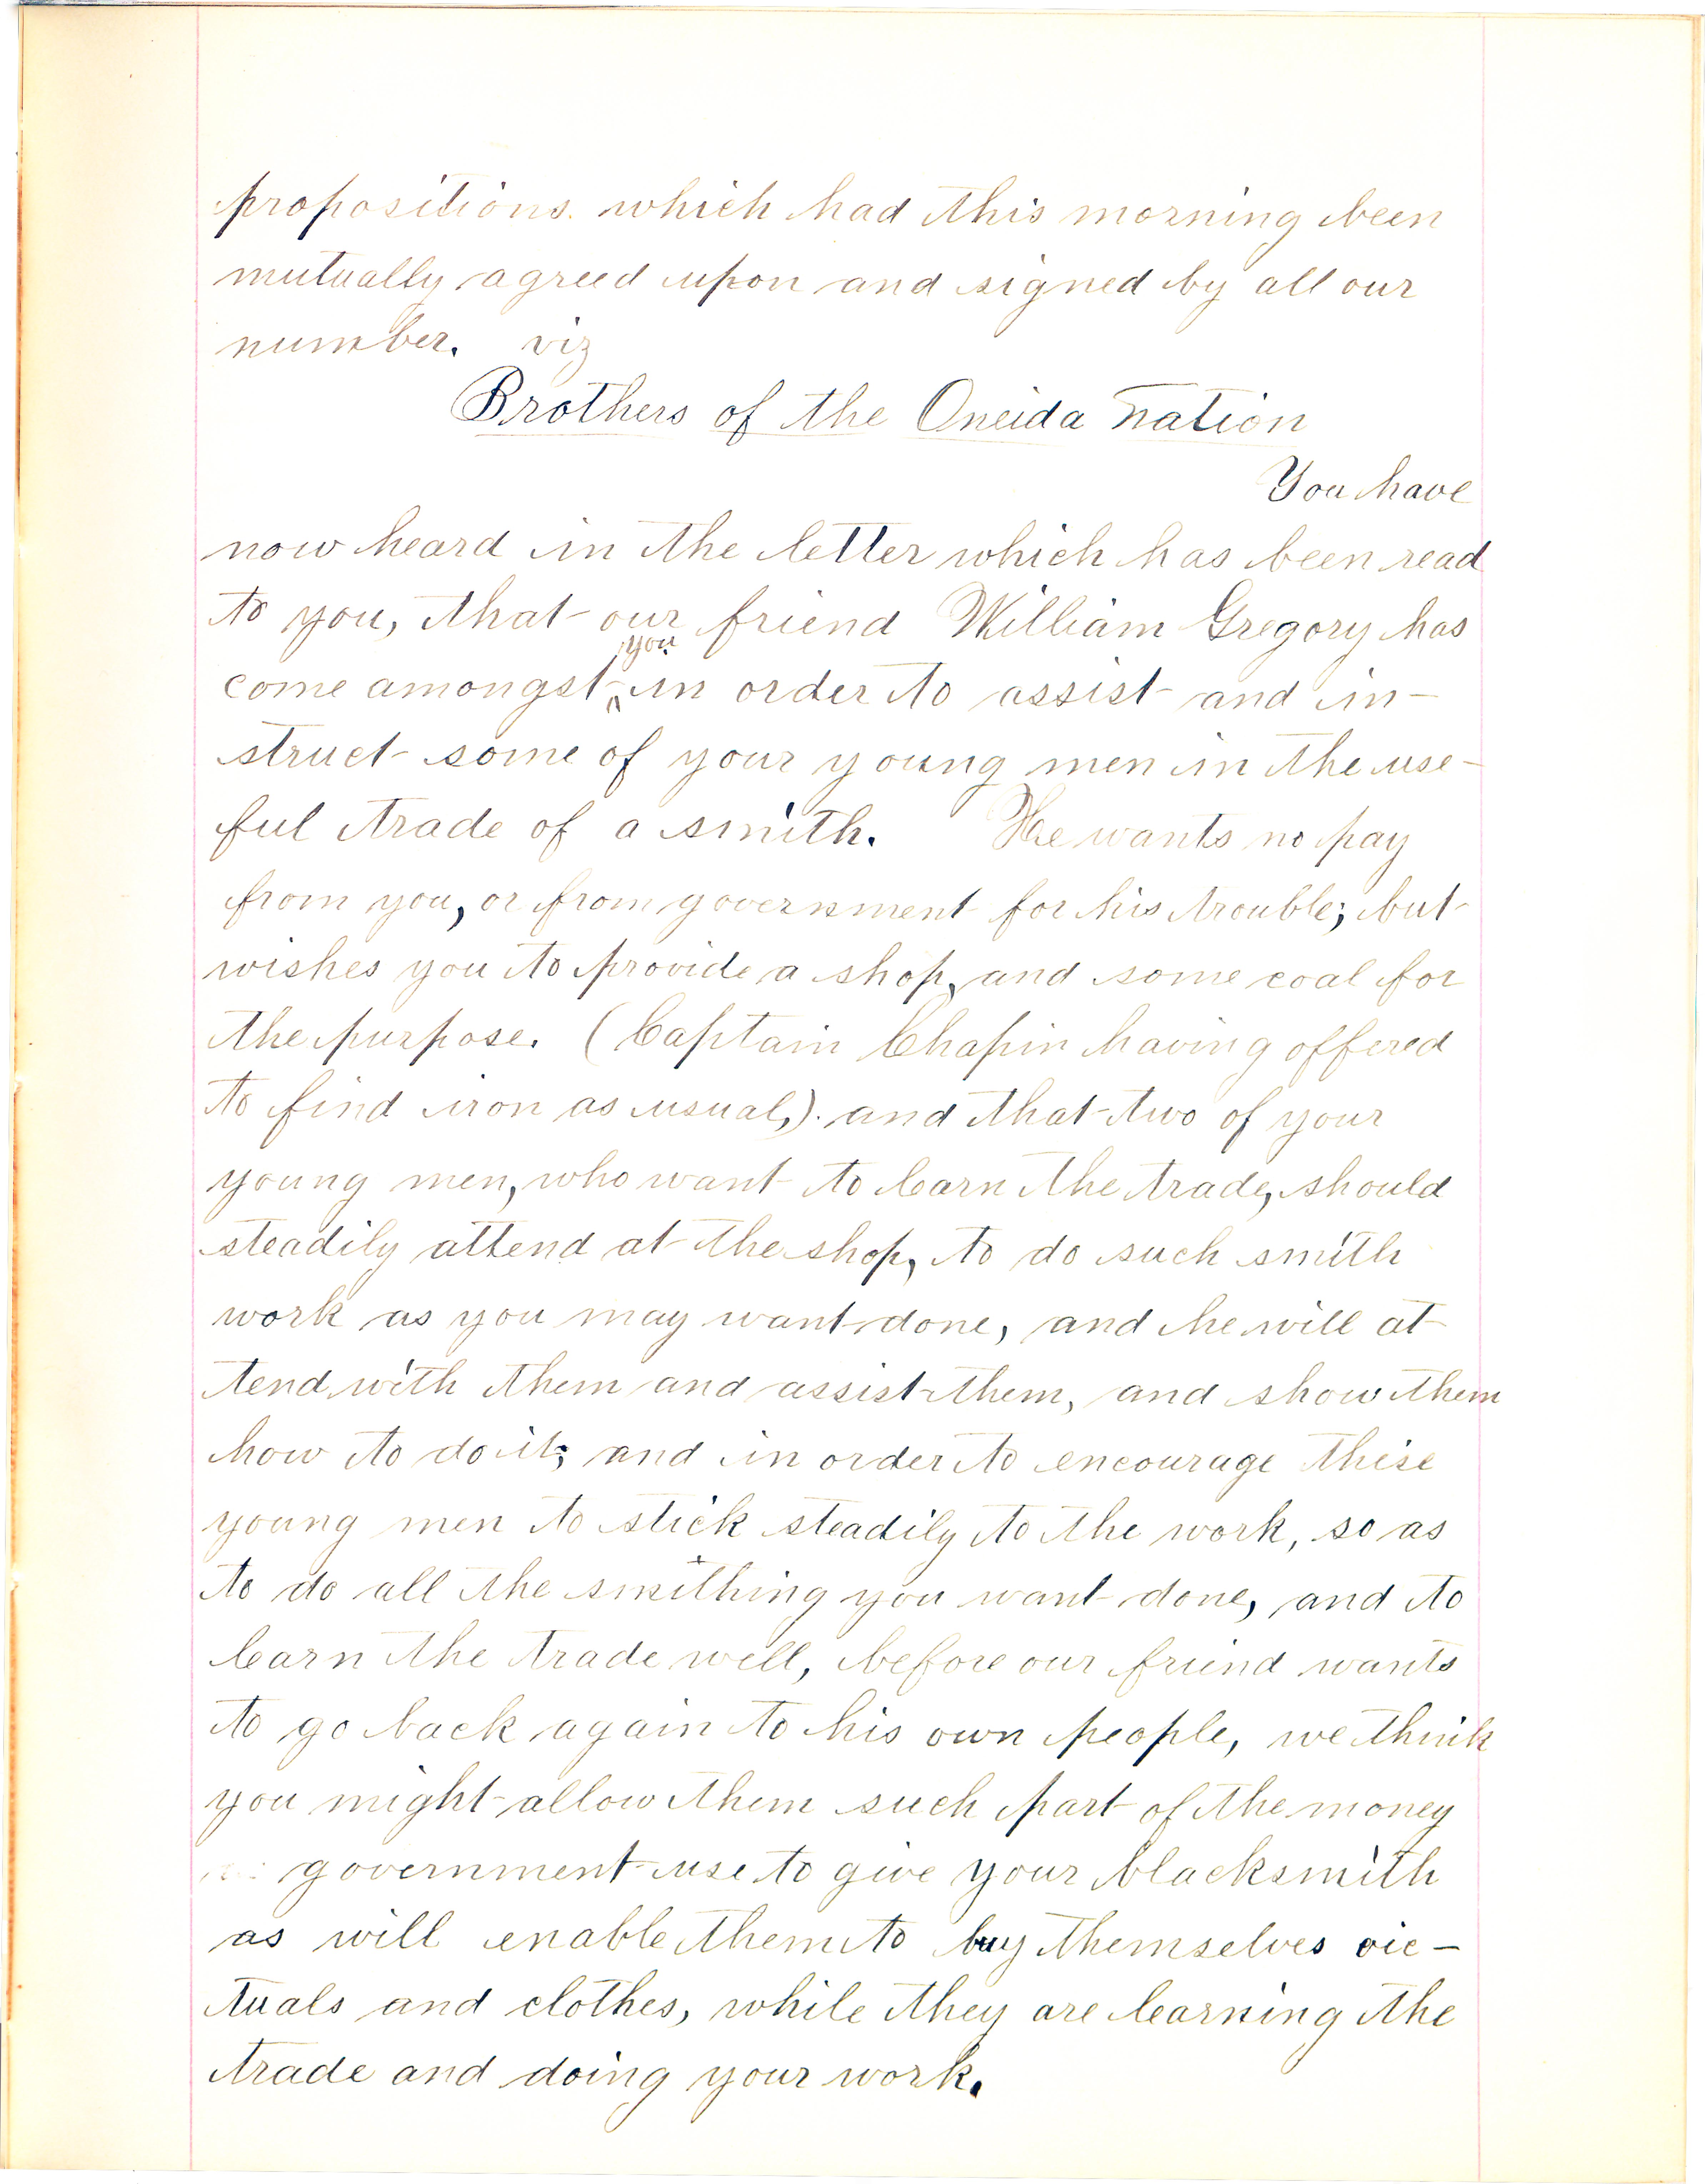 propositions. which had this morning been
mutually agreed upon and signed by all our
number. viz
Brothers of the Oneida nation
You have
now heard in the letter which has been read
to you, that our friend William Gregory has
you
come amongst in order to assist and in-
struct some of your young men in the use-
ful trade of a smith. He wants no pay
from you, or from government for his trouble; but
wishes you to provide a shop, and some coal for
the purpose. (Captain Chapin having offered
to find iron as usual,) and that two of your
young men, who want to learn the trade, should
steadily attend at the shop, to do such smith
work as you may want done, and he will at
tend with them and assist them, and show them
how to do it; and in order to encourage these
young men to stick steadily to the work, so as
to do all the smithing you want done, and to
learn the trade well, before our friend wants
to go back again to his own people, we think
you might allow them such part of the money
government use to give your blacksmith
as will enable them to buy themselves vic-
tuals and clothes, while they are learning the
trade and doing your work.